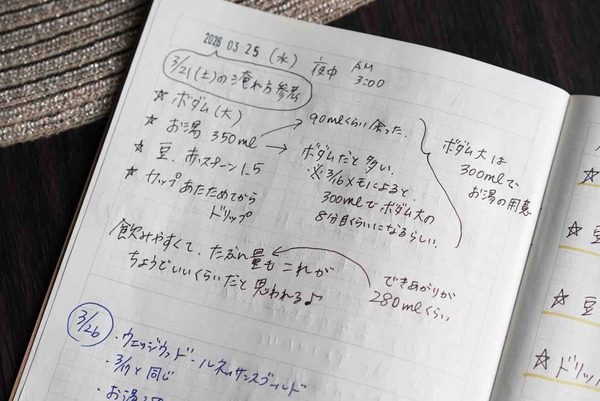 2026 03 25 (水) 夜中 AM 3:00
3/21(土)の淹れ方参考
☆ ボダム(大)
☆ お湯 350ml → 90mlくらい余った。
☆ 豆、赤スプーン1.5
☆ カップあたためてから
ドリップ
→ ボダムだと多い。
※3/16メモによると、
300mlでボダム大の
8分目くらいになるらしい。
ボダム大は
300mlで
お湯の用意
飲みやすくて、たぶん量もこれが
ちょうどいいくらいだと思われる♪
できあがりが
280mlくらい
3/26
・ウェッジウッド・ルネッサンスゴールド
・3/17と同じ
・お湯
☆
☆ 豆
☆ 豆
☆ ドリッ